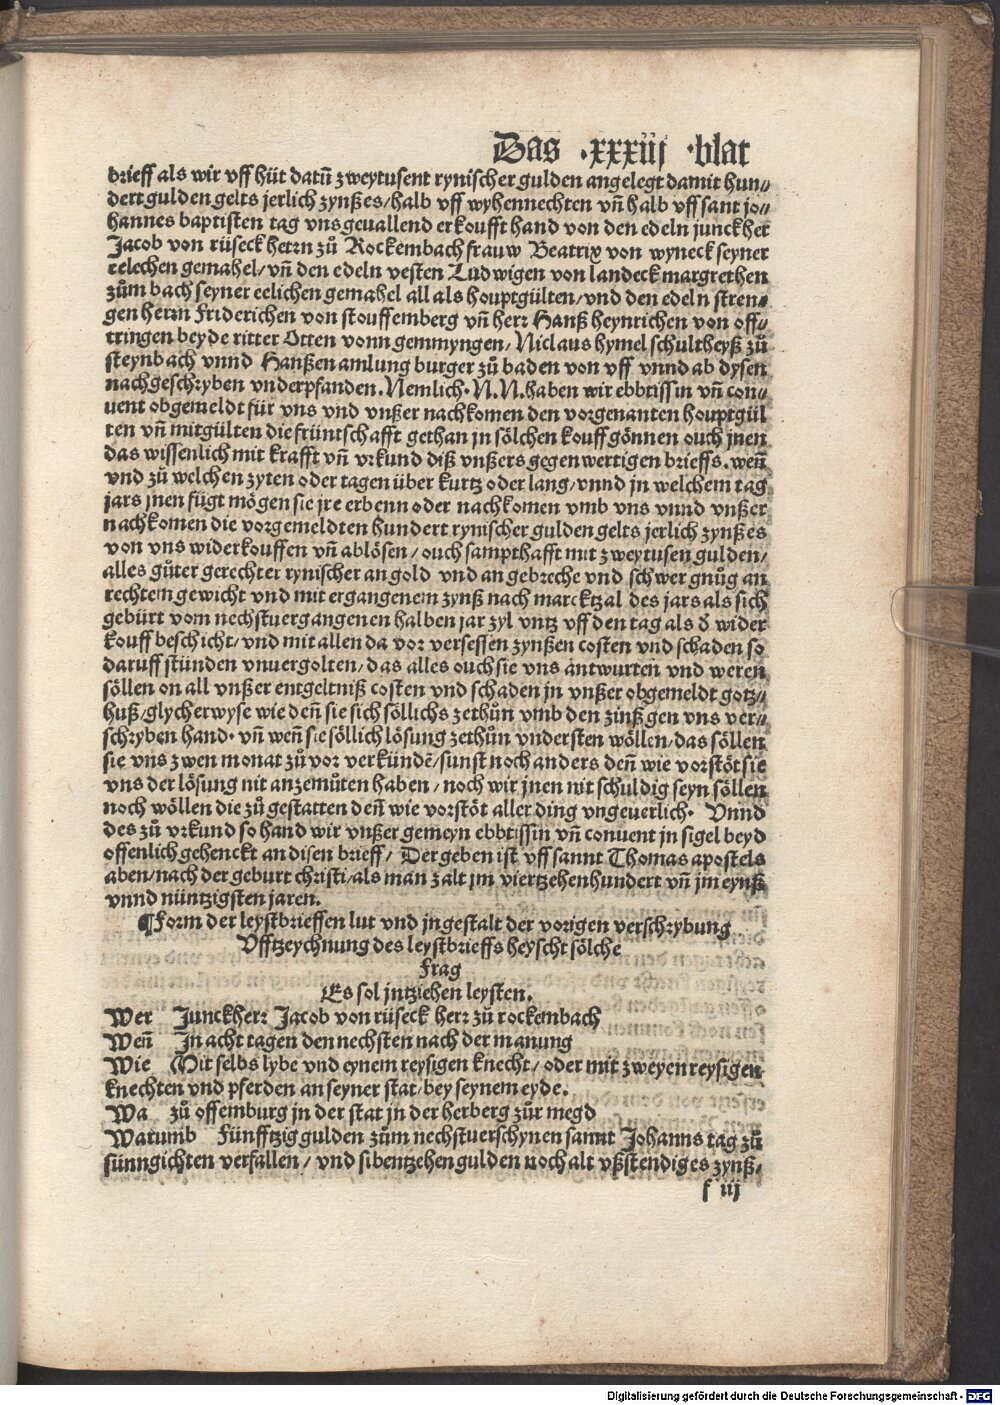 Das .xxxiij .blat
brieff als wir vff hüt datū zweytusent rynischer gulden angelegt damit hun⸗
dert gulden gelts jerlich zynßes/halb vff wyhennechten vn̄ halb vff sant jo⸗
hannes baptisten tag vns geuallend erkoufft hand von den edeln junckher
Jacob von rüseck herrn zů Rockembach frauw Beatrix von wyneck seyner
eelechen gemahel/vn̄ den edeln vesten Ludwigen von landeck margrethen
zům bach seyner eelichen gemahel all als houptgülten/vnd den edeln stren⸗
gen herrn Friderichen von stouffemberg vn̄ herr Hanß heynrichen von off⸗
tringen beyde ritter Otten vonn gemmyngen/Niclaus hymel schultheyß zů
steynbach vnnd Hanßen amlung burger zů baden von vff vnnd ab dysen
nachgeschryben vnderpfanden. Nemlich. N. N. haben wir ebbtissin vn̄ con⸗
uent obgemeldt für vns vnd vnßer nachkomen den vorgenanten houptgül
ten vn̄ mitgülten die früntschafft gethan jn sölchen kouff gönnen ouch jnen
das wissenlich mit krafft vn̄ vrkund diß vnßers gegenwertigen brieffs. wen̄
vnd zů welchen zyten oder tagen über kurtz oder lang/vnnd jn welchem tag
jars jnen fügt mögen sie jre erbenn oder nachkomen vmb vns vnnd vnßer
nachkomen die vorgemeldten hundert rynischer gulden gelts jerlich zynßes
von vns widerkouffen vn̄ ablösen/ouch sampthafft mit zweytusen gulden/
alles gůter gerechter rynischer an gold vnd an gebreche vnd schwer gnůg an
rechtem gewicht vnd mit ergangenem zynß nach marcktzal des jars als sich
gebürt vom nechstuergangenen halben jar zyl vntz vff den tag als d̄ wider
kouff beschicht/vnd mit allen da vor versessen zynßen costen vnd schaden so
daruff stünden vnuergolten/das alles ouch sie vns antwurten vnd weren
söllen on all vnßer entgeltniß costen vnd schaden jn vnßer obgemeldt gotz⸗
huß/glycherwyse wie den̄ sie sich söllichs zethůn vmb den zinß gen vns ver⸗
schryben hand. vn̄ wen̄ sie söllich lösung zethůn vndersten wöllen/das söllen
sie vns zwen monat zů vor verkündē/sunst noch anders den̄ wie vorstöt sie
vns der lösung nit anzemůten haben/noch wir jnen nit schuldig seyn söllen
noch wöllen die zů gestatten den̄ wie vorstöt aller ding vngeuerlich. Vnnd
des zů vrkund so hand wir vnßer gemeyn ebbtissin vn̄ conuent jn sigel beyd
offenlich gehenckt an disen brieff/ Der geben ist vff sannt Thomas apostels
aben/nach der geburt christi/als man zalt jm viertzehenhundert vn̄ jm eynß
vnnd nüntzigsten jaren.
¶Form der leystbrieffen lut vnd jn gestalt der vorigen verschrybung
Vfftzeychnung des leystbrieffs heyscht sölche
Frag
Es sol jntziehen leysten.
Wer Junckherr Jacob von rüseck herr zů rockembach
Wen̄ Jn acht tagen den nechsten nach der manung
Wie Mit selbs lybe vnd eynem reysigen knecht/oder mit zweyen reysigen
knechten vnd pferden an seyner stat/bey seynem eyde.
Wa zů offemburg jn der stat jn der herberg zůr megd
Warumb Fünfftzig gulden zům nechstuerschynen sannt Johanns tag zů
sünngichten verfallen/vnd sibentzehen gulden noch alt vßstendiges zynß/
f iij
Digitalisierung gefördert durch die Deutsche Forschungsgemeinschaft - DFG